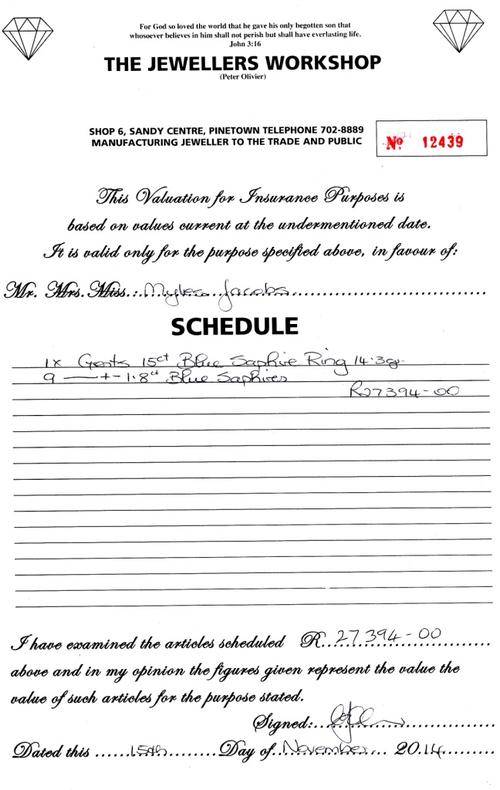 For God so loved the world that he gave his only begotten son that
whosoever believes in him shall not perish but shall have everlasting life.
John 3:16
THE JEWELLERS WORKSHOP
(Peter Olivier)
SHOP 6, SANDY CENTRE, PINETOWN TELEPHONE 702-8889
MANUFACTURING JEWELLER TO THE TRADE AND PUBLIC
No 12439
This Valuation for Insurance Purposes is
based on values current at the undermentioned date.
It is valid only for the purpose specified above, in favour of:
Mr. Mrs. Miss: Myles Jacobs
SCHEDULE
1x Gents 15ct Blue Saphire Ring 14.3gr
9 — +- 1.8ct Blue Saphires
R27394-00
I have examined the articles scheduled R 27394-00
above and in my opinion the figures given represent the value the
value of such articles for the purpose stated.
Signed:
Dated this 15th Day of November 2014